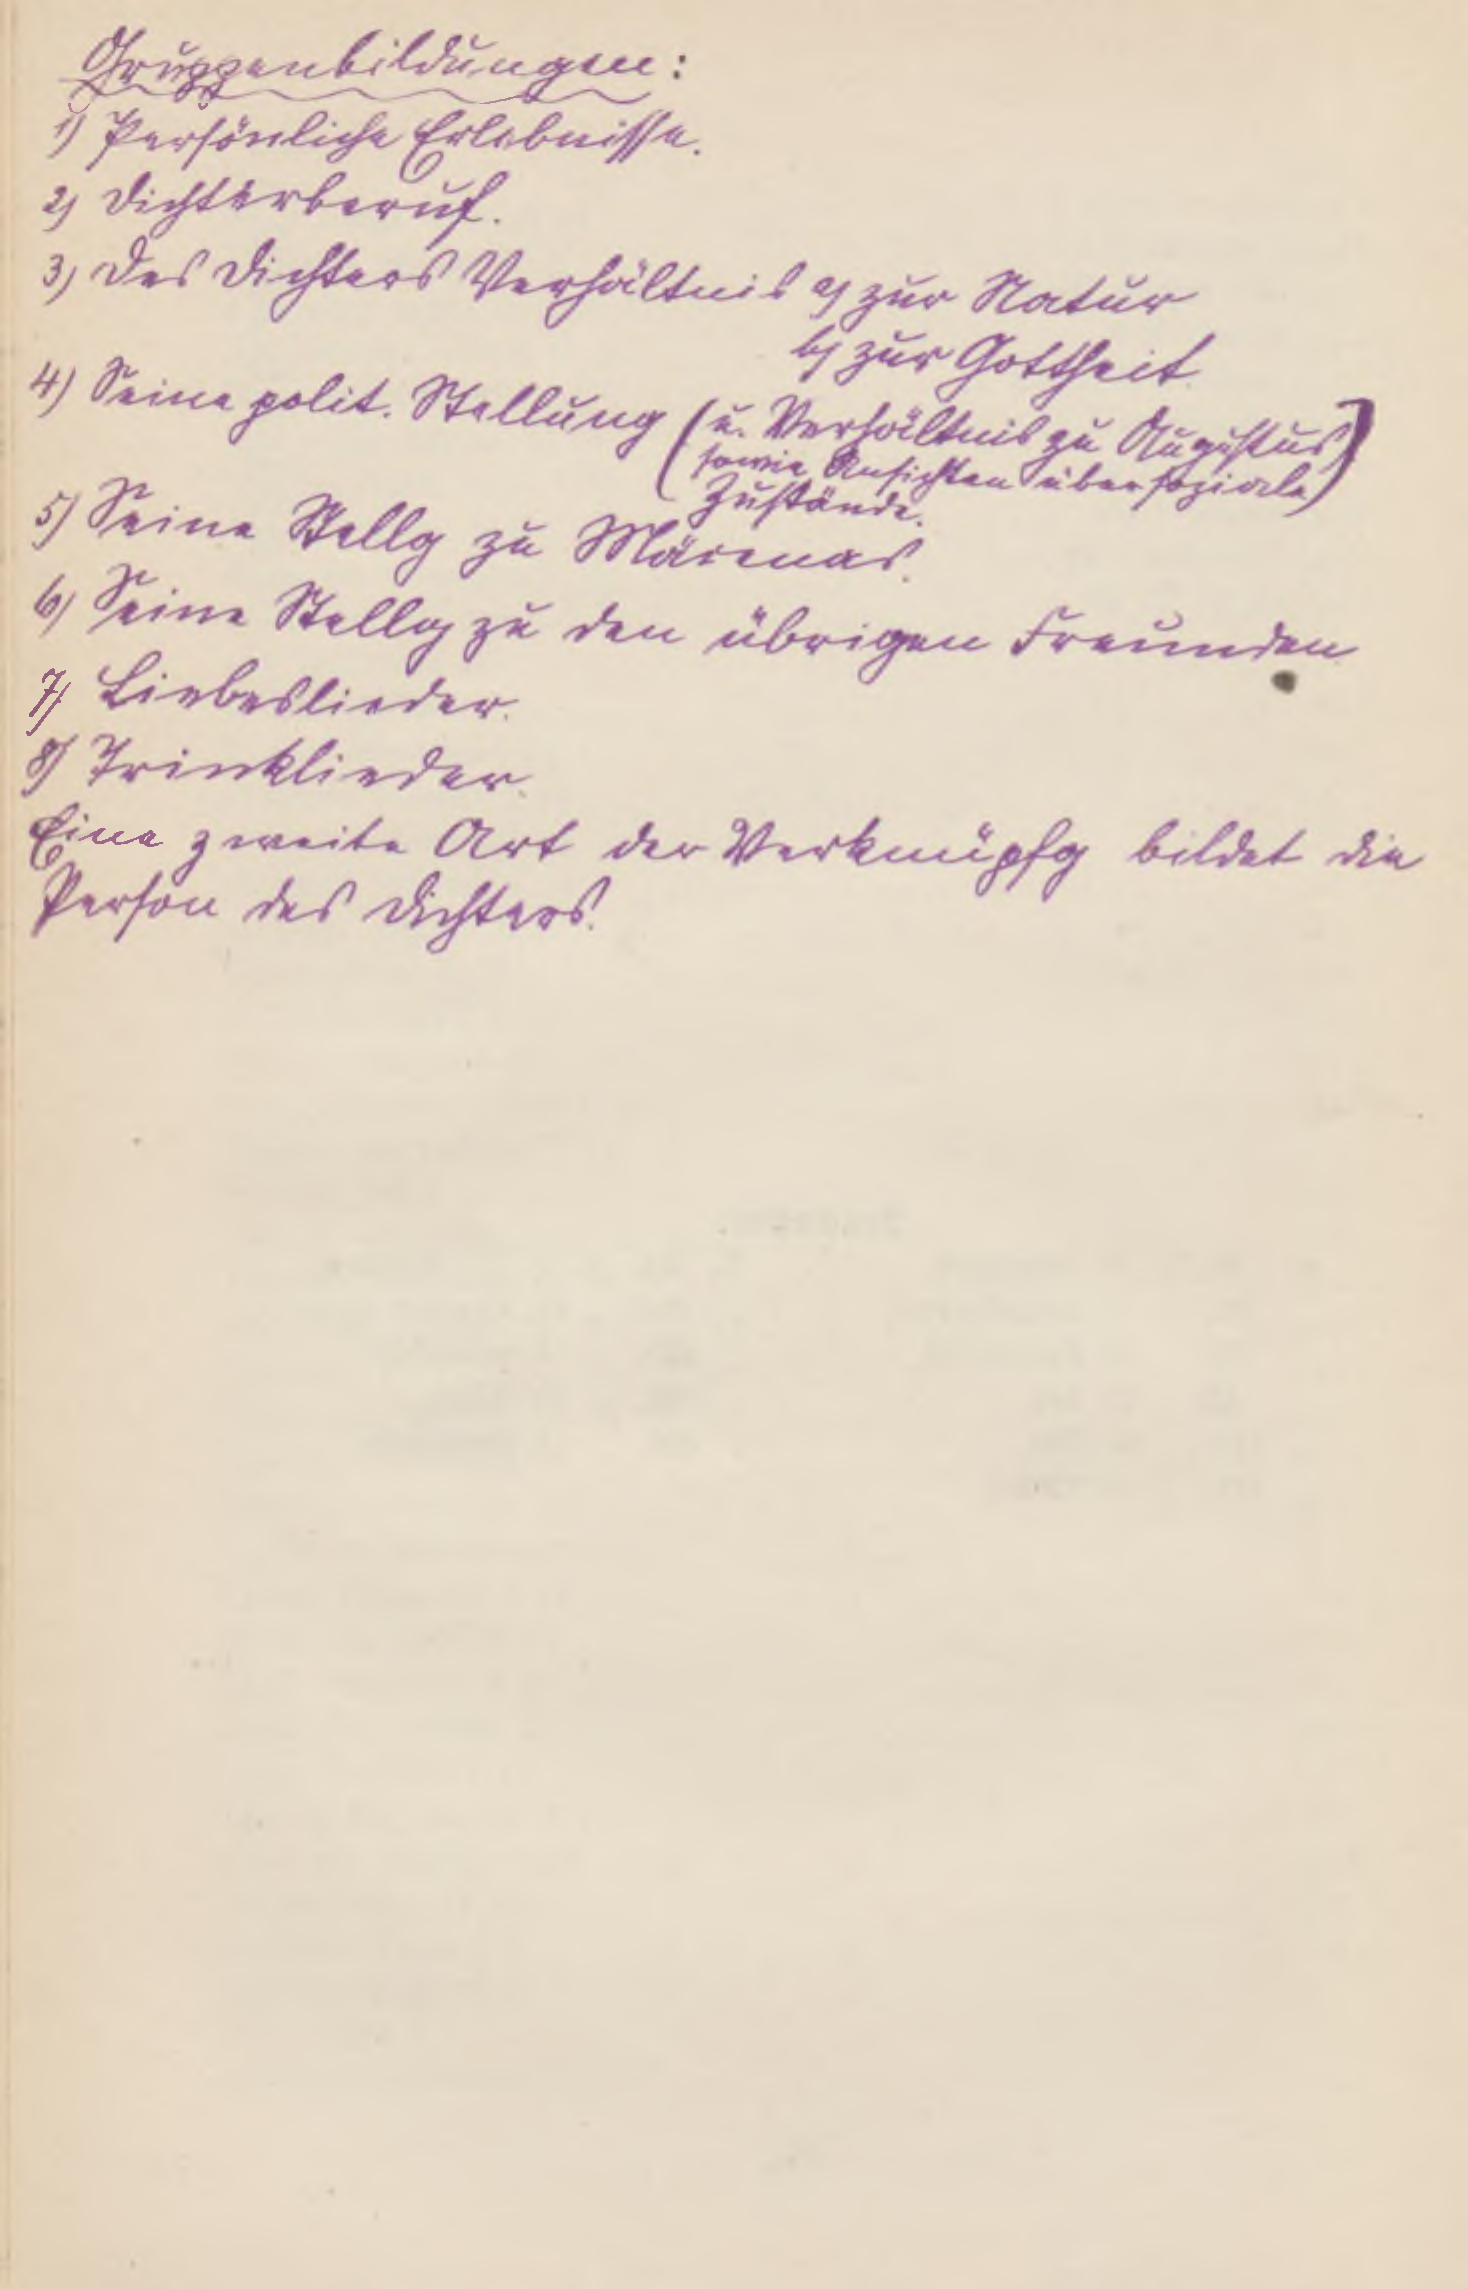 Gruppenbildungen:
1) Persönliche Erlebnisse.
2) Dichterberuf.
3) Des Dichters Verhältnis a) zur Natur
b) zur Gottheit.
4) Seine polit. Stellung (u. Verhältnis zu Augustus)
(sowie Ansichten über soziale)
Zustände.
5) Seine Stellg zu Mäcenas.
6) Seine Stellg zu den übrigen Freunden
7) Liebeslieder.
8) Trinklieder.
Eine zweite Art der Verknüpfg bildet die
Person des Dichters.